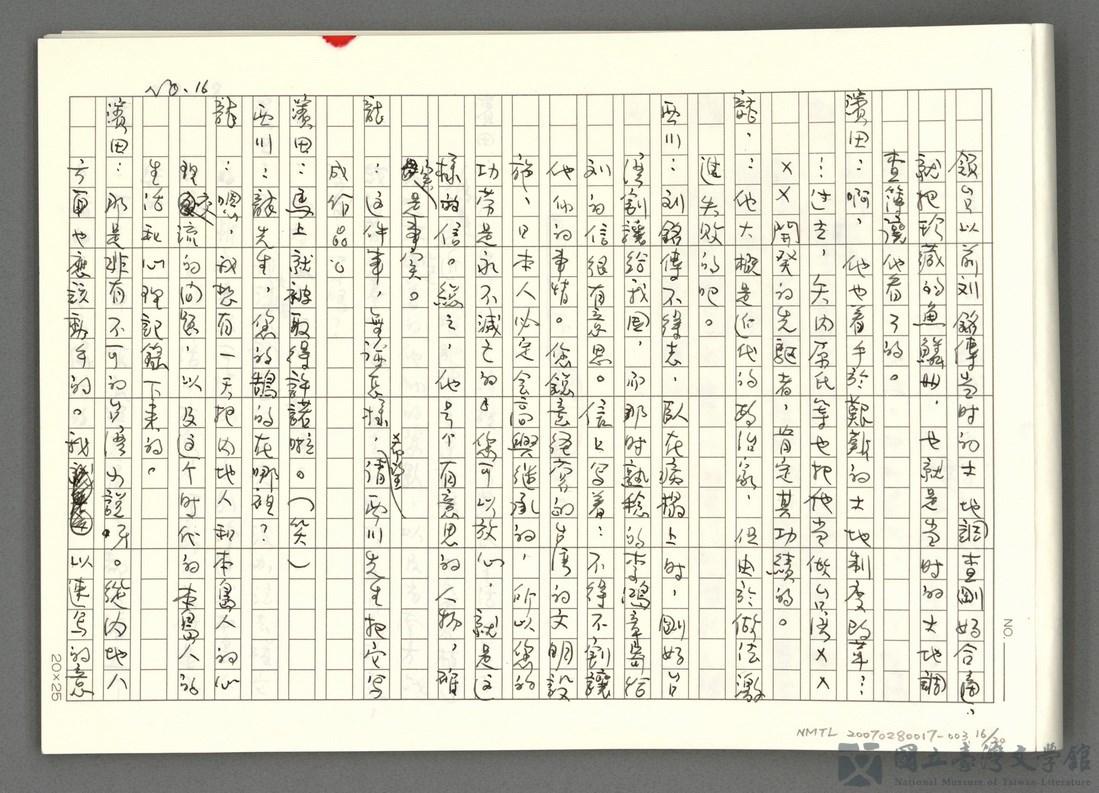 領台以前刘銘傳当时的土地調查剛好合適,
就把珍藏的魚鱗冊,也就是当时的土地調
查簿讓他看了的。
濱田:啊,他也着手於艱難的土地制度改革…
…过去,矢内原氏等也把他当做台湾××
××開発的先驅者,肯定其功績的。
龍:他大概是近代的政治家,但由於做法激
進失敗的吧。
西川:刘銘傳不得志,臥在病榻上时,剛好台
湾割讓給我國,而那时熟稔的李鴻章寄給
刘的信很有意思。信上写着:不得不割讓
他们的事情。您銳意經営的台湾的文明設
施,日本人必定会高興继承的,所以您的
功劳是永不滅亡的,您可以放心,就是这
樣的信。総之,他是个有意思的人物,確
實是事实。
龍:这件事,無論怎樣,希望請西川先生把它写
成作品。
濱田:馬上就被取得許諾啦。(笑)
西川:龍先生,您的鵠的在哪裡?
龍:嗯,我想有一天把内地人和本島人的心
理交流的问題,以及这个时代的本島人的
生活和心理記錄下来的。
濱田:那是非有不可的台湾小說呀。從内地人
方面也應該動手的。我 以連写的意
No. 16
NO.
20×25
NMTL 20070280017-003 16/30
國立臺灣文學館
National Museum of Taiwan Literature